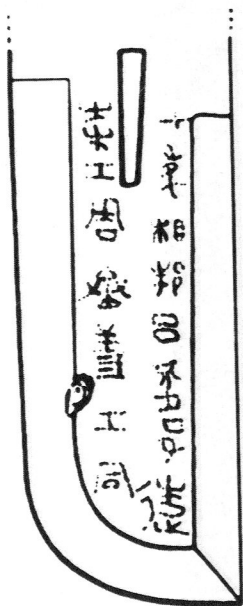 七年相邦呂不韋造
寺工周丞義工同